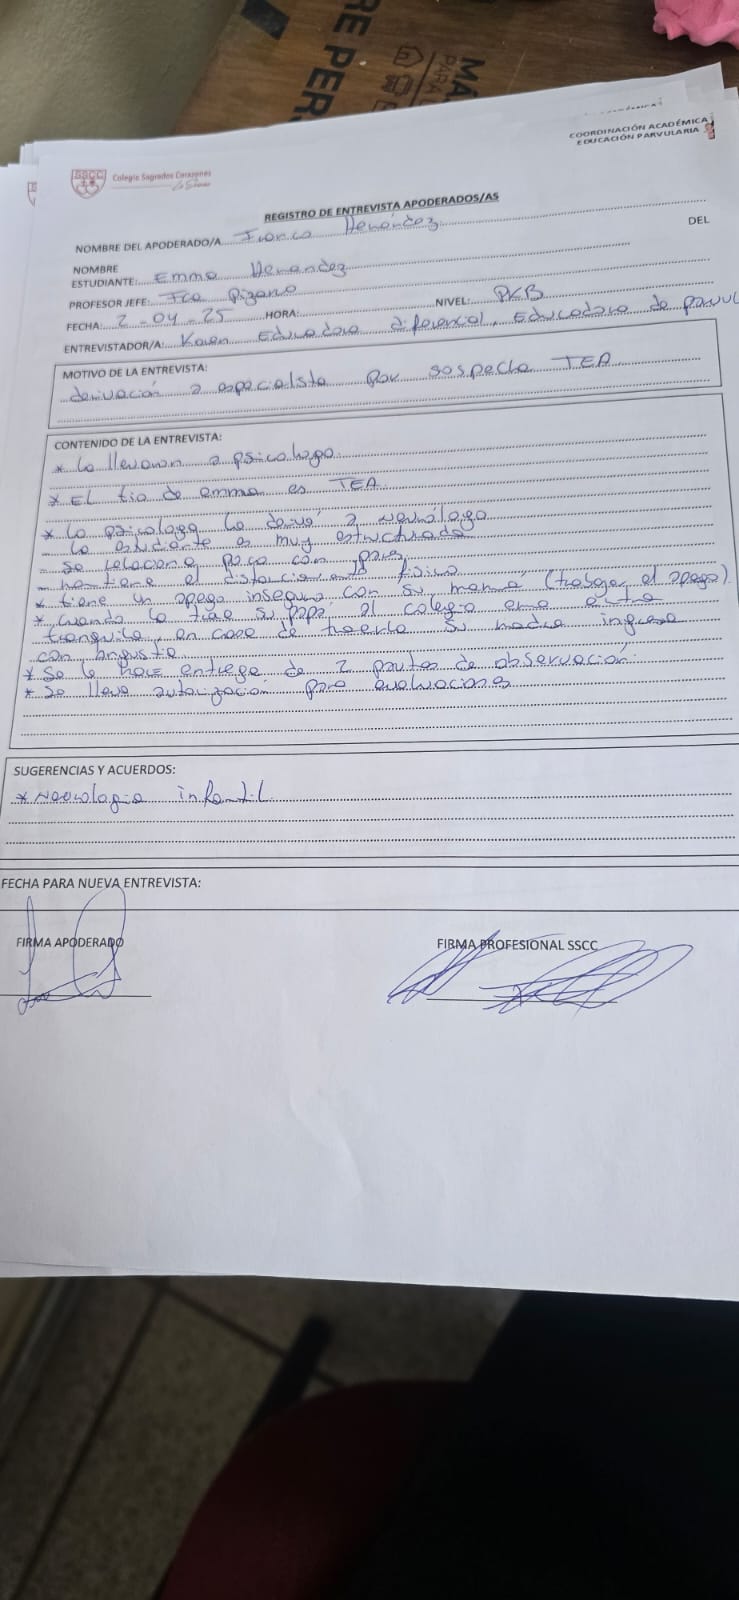 RE PER
MÁ
PARA
COORDINACIÓN ACADÉMICA
EDUCACIÓN PARVULARIA
SSCC
Colegio Sagrados Corazones
REGISTRO DE ENTREVISTA APODERADOS/AS
NOMBRE DEL APODERADO/A Franco Hernández
NOMBRE DEL
ESTUDIANTE: Emma Hernandez
PROFESOR JEFE: Fca Pizano
FECHA: 2-04-25 HORA: NIVEL: PKB
ENTREVISTADOR/A: Karen Educadora diferencial, Educadora de parvul
MOTIVO DE LA ENTREVISTA:
derivación a especialista por sospecha TEA
CONTENIDO DE LA ENTREVISTA:
* La llevaron a psicologo
* El tio de emma es TEA
* La psicologa la derivó a neurólogo
- la estudiante es muy estructurada
- se relaciona poco con pares
- mantiene el distanciamiento físico
* tiene un apego inseguro con su mamá (trabajar el apego)
* cuando la trae su papá al colegio entra
tranquila, en caso de traerla su madre ingresa
con angustia
* Se le hace entrega de 2 pautas de observación
* Se lleva autorización para evaluaciones
SUGERENCIAS Y ACUERDOS:
* Neurologia infantil
FECHA PARA NUEVA ENTREVISTA:
FIRMA APODERADO FIRMA PROFESIONAL SSCC